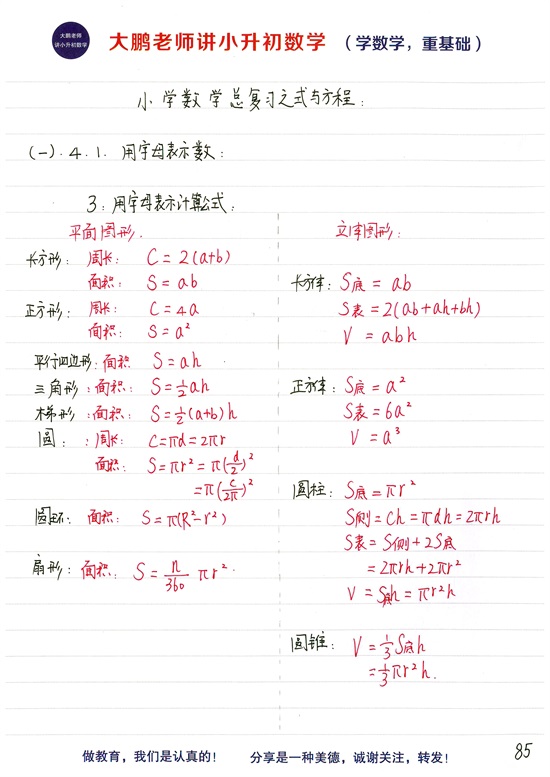 大鹏老师
讲小升初数学
大鹏老师讲小升初数学 (学数学，重基础)
小学数学总复习之式与方程:
(一).4.1. 用字母表示数:
3: 用字母表示计算公式:
平面图形.
长方形: 周长: C = 2(a+b)
面积: S = ab
正方形: 周长: C = 4a
面积: S = a²
平行四边形: 面积 S = ah
三角形: 面积: S = ½ah
梯形: 面积: S = ½(a+b)h
圆: : 周长: C = πd = 2πr
面积: S = πr² = π(d/2)²
= π(C/2π)²
圆环: 面积: S = π(R²-r²)
扇形: 面积: S = n/360 πr².
立体图形:
长方体: S底 = ab
S表 = 2(ab+ah+bh)
V = abh
正方体: S底 = a²
S表 = 6a²
V = a³
圆柱: S底 = πr²
S侧 = Ch = πdh = 2πrh
S表 = S侧 + 2S底
= 2πrh + 2πr²
V = S底h = πr²h
圆锥: V = ⅓S底h
= ⅓πr²h.
做教育，我们是认真的! 分享是一种美德，诚谢关注，转发!
85